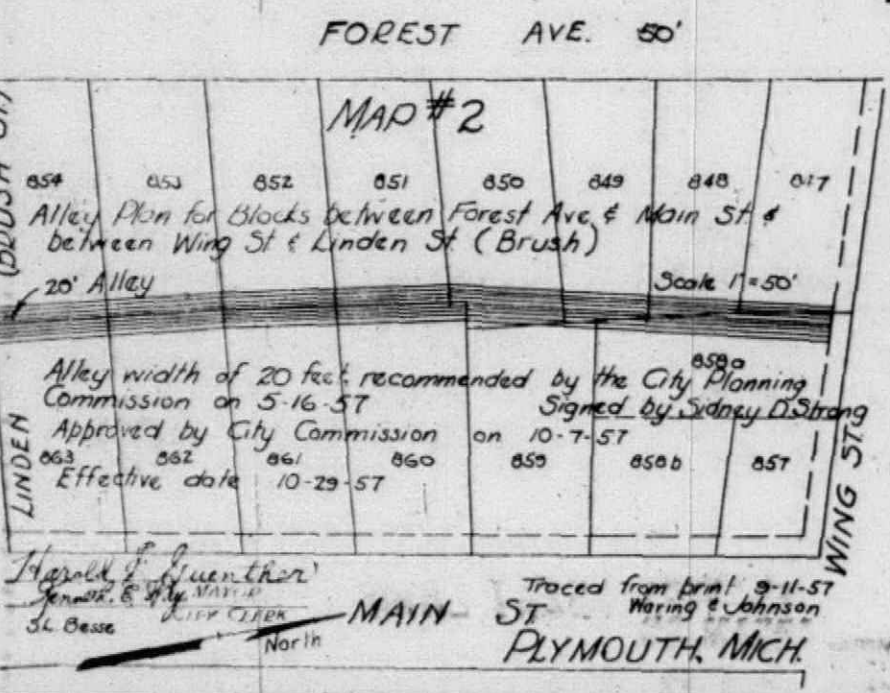 FOREST AVE. 50'
MAP #2
854 853 852 851 850 849 848 847
Alley Plan for Blocks between Forest Ave & Main St &
between Wing St & Linden St (Brush)
20' Alley
Scale 1"=50'
858a
Alley width of 20 feet recommended by the City Planning
Commission on 5-16-57
Signed by Sidney D. Strong
Approved by City Commission on 10-7-57
863 862 861 860 859 858b 857
Effective date 10-29-57
LINDEN
(BRUSH ST.)
WING ST.
Harold F. Guenther
MAYOR
CITY CLERK
S.L. Besse
North
MAIN ST
Traced from print 9-11-57
Waring & Johnson
PLYMOUTH, MICH.